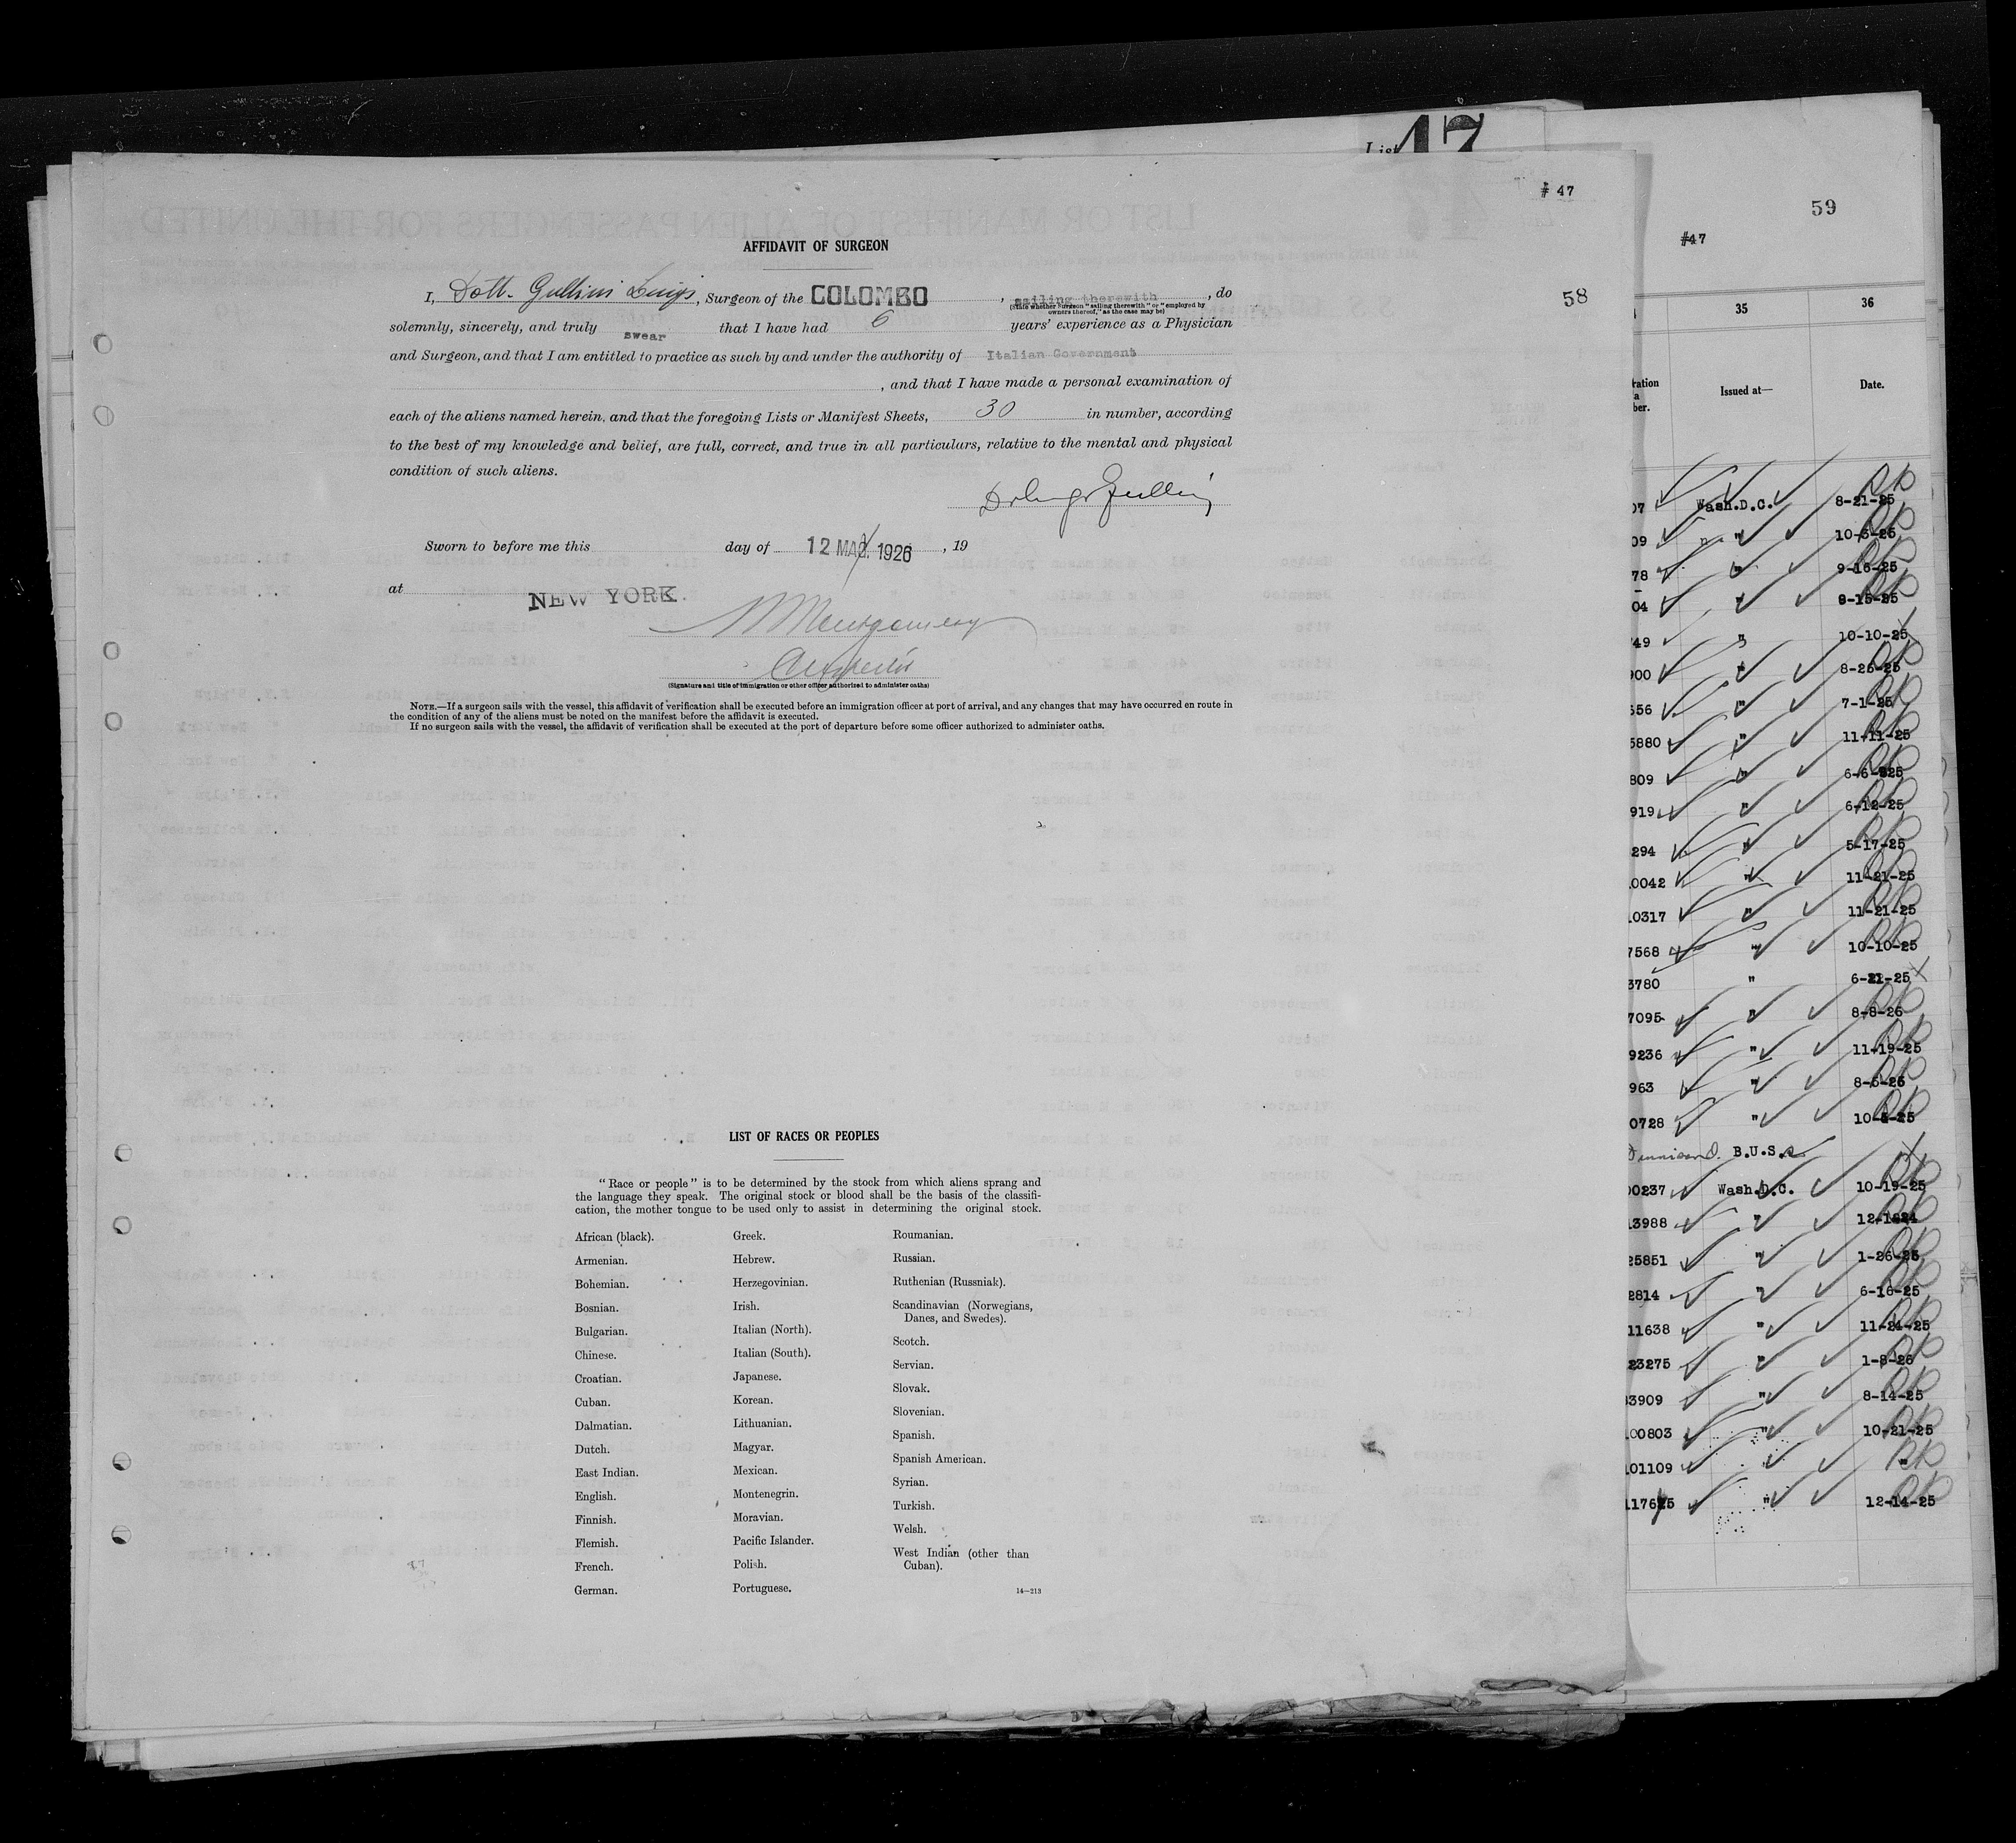 List 47
# 47
58
AFFIDAVIT OF SURGEON
I, Dott. Gullini Luigi, Surgeon of the COLOMBO, sailing therewith, do
(State whether Surgeon "sailing therewith" or "employed by
owners thereof," as the case may be)
solemnly, sincerely, and truly swear that I have had 6 years' experience as a Physician
and Surgeon, and that I am entitled to practice as such by and under the authority of Italian Government
, and that I have made a personal examination of
each of the aliens named herein, and that the foregoing Lists or Manifest Sheets, 30 in number, according
to the best of my knowledge and belief, are full, correct, and true in all particulars, relative to the mental and physical
condition of such aliens.
Sworn to before me this day of 12 MAR 1926, 19
at NEW YORK
Montgomery
(Signature and title of immigration or other officer authorized to administer oaths)
NOTE.—If a surgeon sails with the vessel, this affidavit of verification shall be executed before an immigration officer at port of arrival, and any changes that may have occurred en route in
the condition of any of the aliens must be noted on the manifest before the affidavit is executed.
If no surgeon sails with the vessel, the affidavit of verification shall be executed at the port of departure before some officer authorized to administer oaths.
LIST OF RACES OR PEOPLES
"Race or people" is to be determined by the stock from which aliens sprang and
the language they speak. The original stock or blood shall be the basis of the classifi-
cation, the mother tongue to be used only to assist in determining the original stock.
African (black).
Armenian.
Bohemian.
Bosnian.
Bulgarian.
Chinese.
Croatian.
Cuban.
Dalmatian.
Dutch.
East Indian.
English.
Finnish.
Flemish.
French.
German.
Greek.
Hebrew.
Herzegovinian.
Irish.
Italian (North).
Italian (South).
Japanese.
Korean.
Lithuanian.
Magyar.
Mexican.
Montenegrin.
Moravian.
Pacific Islander.
Polish.
Portuguese.
Roumanian.
Russian.
Ruthenian (Russniak).
Scandinavian (Norwegians,
Danes, and Swedes).
Scotch.
Servian.
Slovak.
Slovenian.
Spanish.
Spanish American.
Syrian.
Turkish.
Welsh.
West Indian (other than
Cuban).
14—213
59
#47
35 36
Issued at— Date.
07 Wash.D.C. 8-21-25
09 " 10-5-25
78 " 9-16-25
04 " 8-15-25
749 " 10-10-25
900 " 8-25-25
656 " 7-1-25
5880 " 11-11-25
809 " 6-6-25
919 " 6-12-25
294 " 5-17-25
10042 " 11-21-25
10317 " 11-21-25
7568 " 10-10-25
3780 " 6-21-25
7095 " 8-8-26
9236 " 11-19-25
963 " 8-5-25
0728 " 10-5-25
B.U.S.
00237 Wash.D.C. 10-19-25
13988 " 12-1-24
25851 " 1-26-25
2814 " 6-16-25
11638 " 11-24-25
23275 " 1-8-26
33909 " 8-14-25
100803 " 10-21-25
101109 " "
117625 " 12-14-25